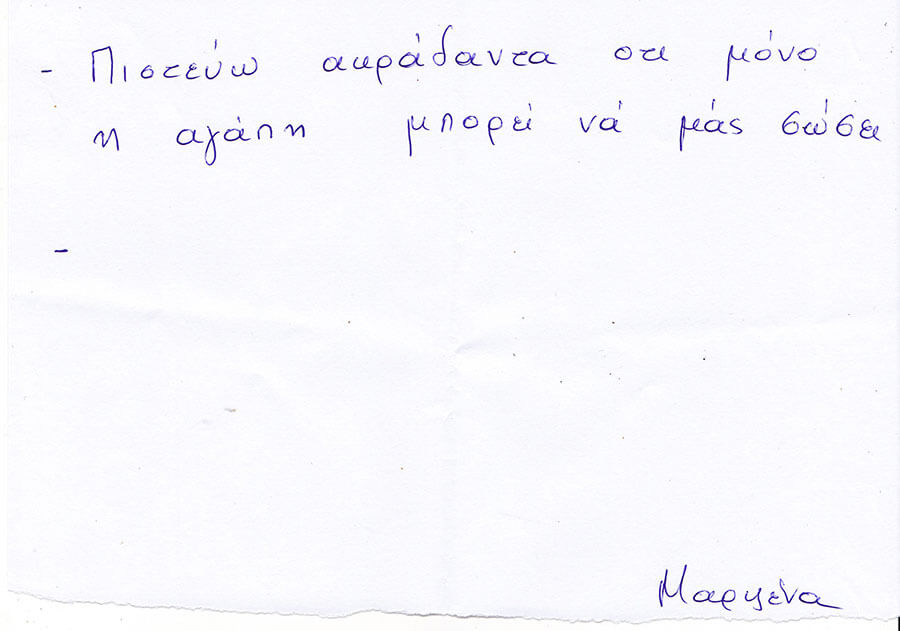 - Πιστεύω ακράδαντα οτι μόνο
η αγάπη μπορεί νά μάς σώσει
-
Μαριλένα